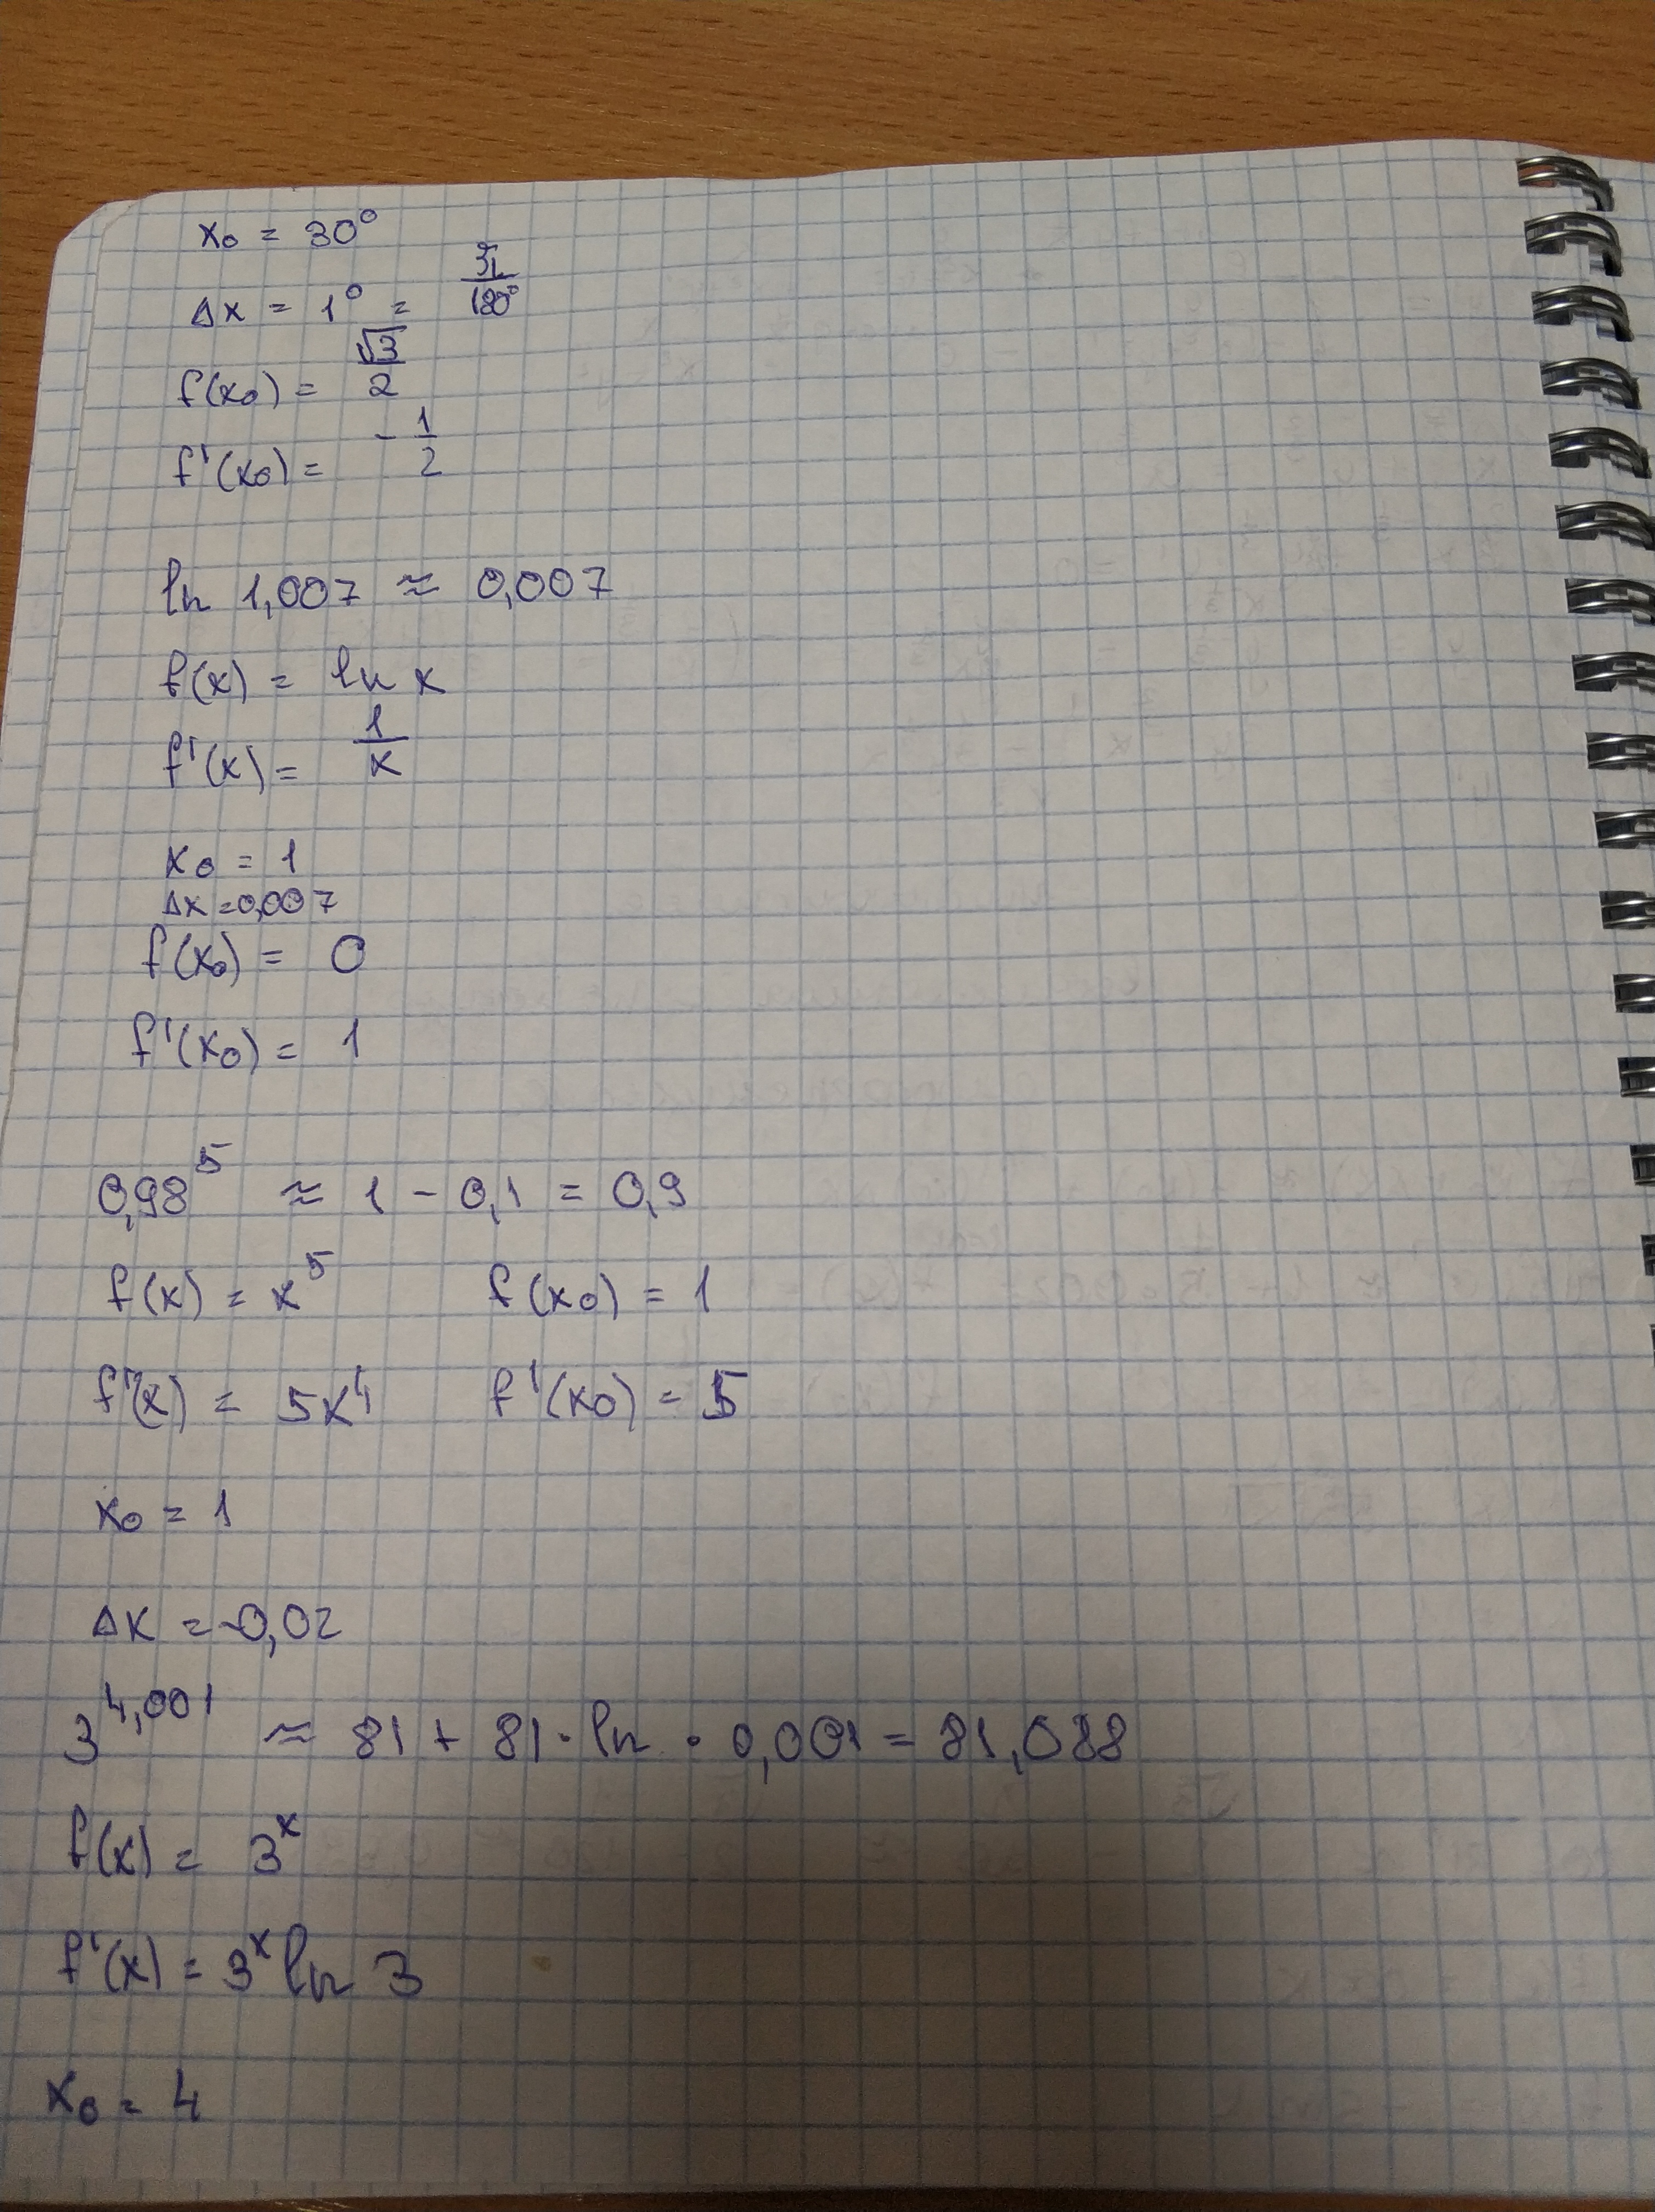 x₀ = 30°
Δx = 1° = π/180°
f(x₀) = √3/2
f'(x₀) = -1/2
ln 1,007 ≈ 0,007
f(x) = ln x
f'(x) = 1/x
x₀ = 1
Δx = 0,007
f(x₀) = 0
f'(x₀) = 1
0,98⁵ ≈ 1 - 0,1 = 0,9
f(x) = x⁵ f(x₀) = 1
f'(x) = 5x⁴ f'(x₀) = 5
x₀ = 1
Δx = -0,02
3^4,001 ≈ 81 + 81 · ln · 0,001 = 81,088
f(x) = 3^x
f'(x) = 3^x ln 3
x₀ = 4